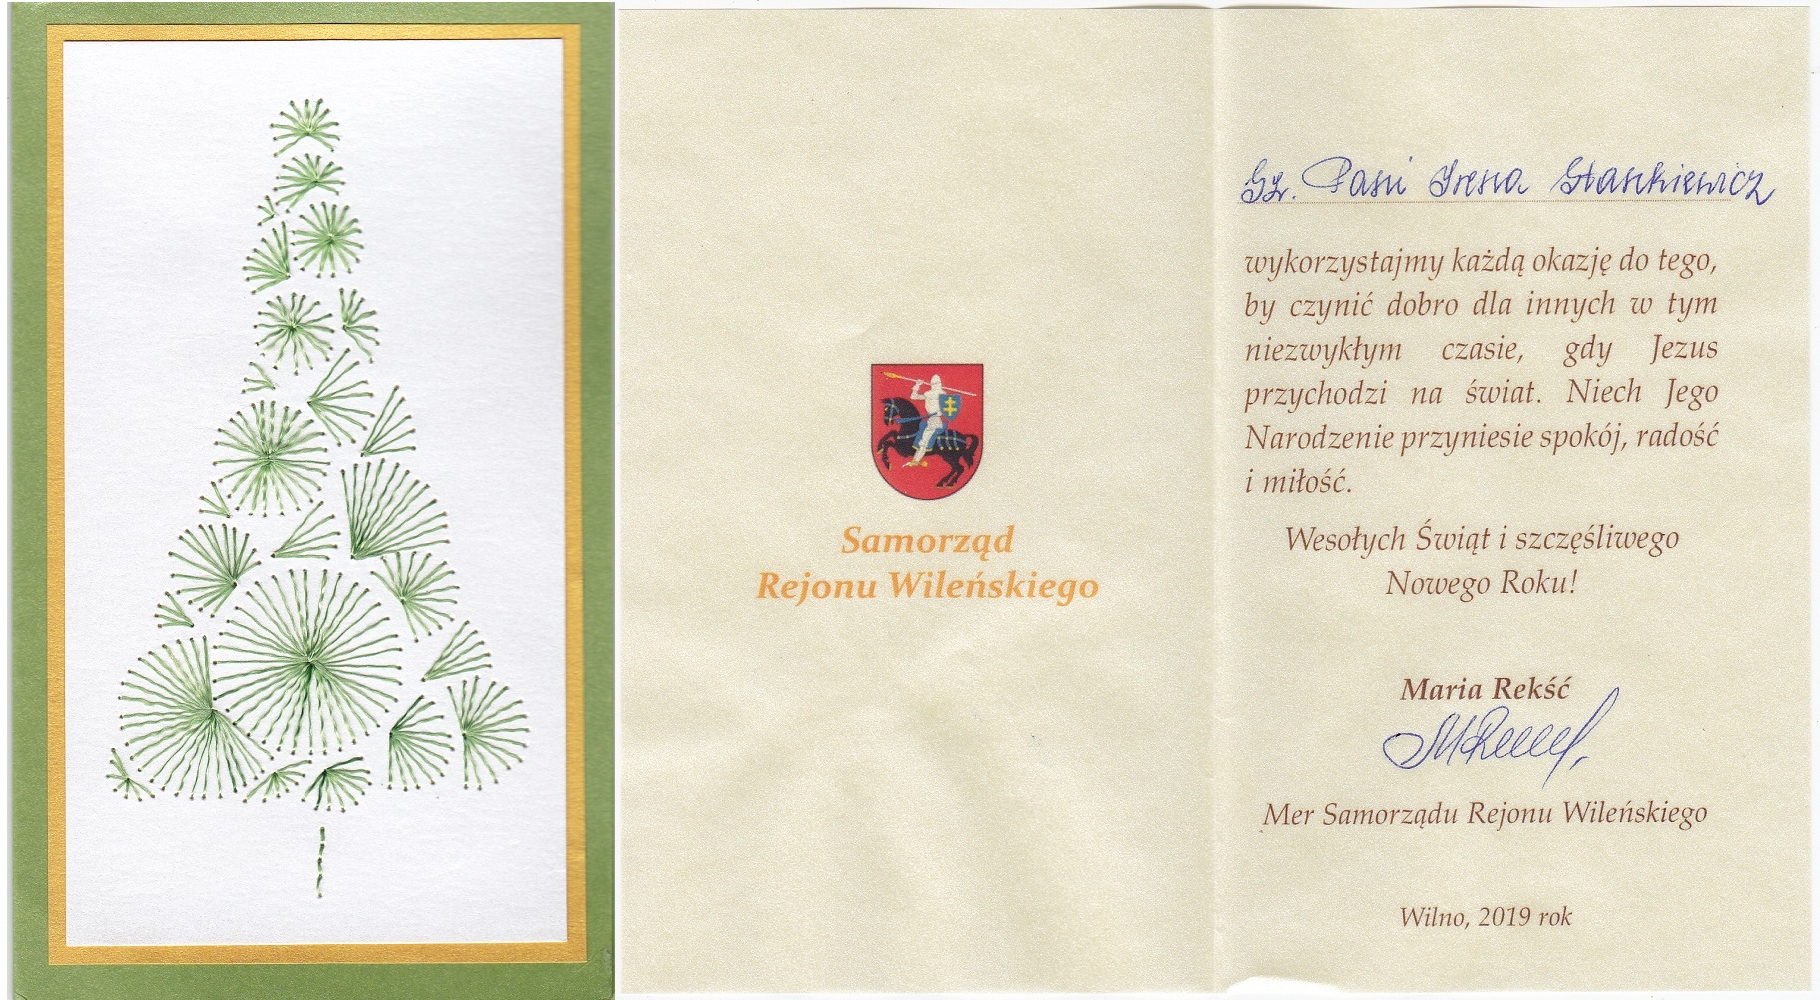 Samorząd
Rejonu Wileńskiego
Sz. Pani Irena Stankiewicz
wykorzystajmy każdą okazję do tego,
by czynić dobro dla innych w tym
niezwykłym czasie, gdy Jezus
przychodzi na świat. Niech Jego
Narodzenie przyniesie spokój, radość
i miłość.
Wesołych Świąt i szczęśliwego
Nowego Roku!
Maria Rekść
Mer Samorządu Rejonu Wileńskiego
Wilno, 2019 rok